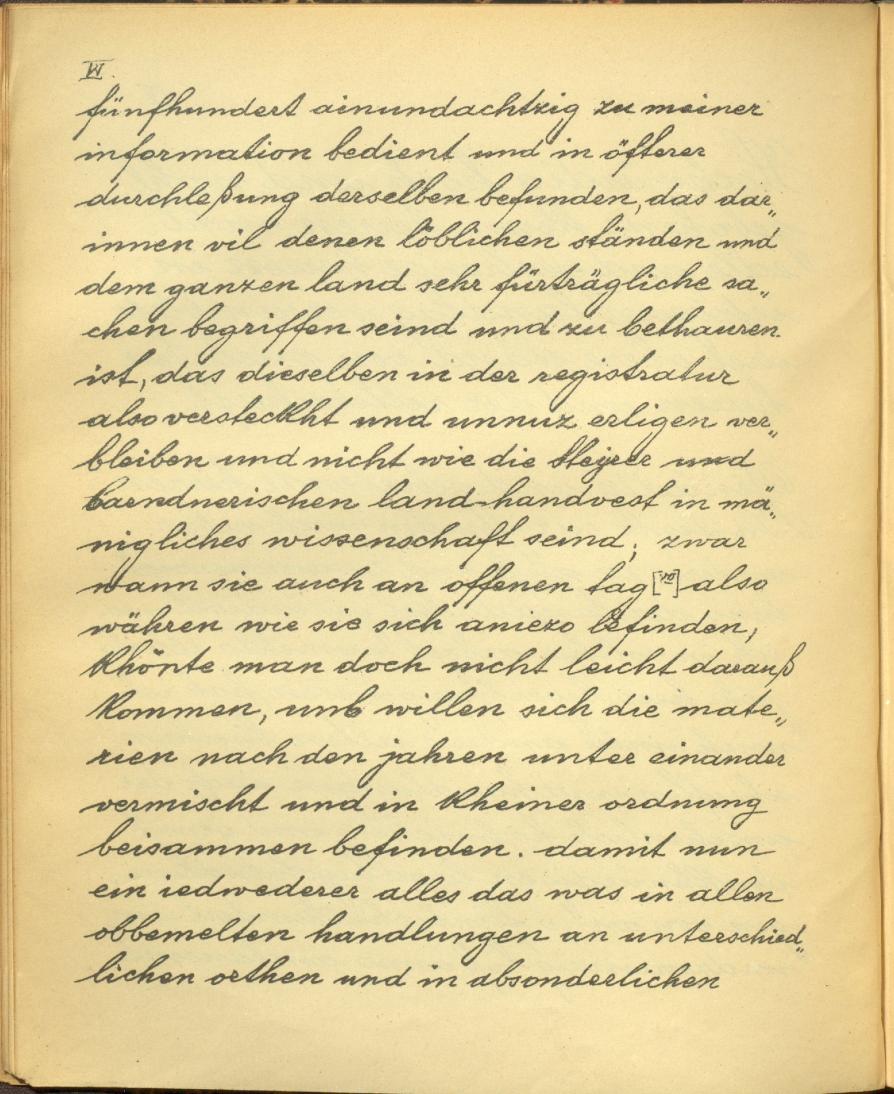 VI.
fünfhundert ainundachtzig zu meiner
information bedient und in öfterer
durchleßung derselben befunden, das dar„
innen vil denen löblichen ständen und
dem ganzen land sehr fürträgliche sa„
chen begriffen seind und zu bethauren
ist, das dieselben in der registratur
also versteckht und unnuz erligen ver„
bleiben und nicht wie die Steyrer und
Caerdnerischen land-handvest in mä„
nigliches wissenschaft seind; zwar
wann sie auch an offenen tag also
währen wie sie sich aniezo befinden,
khönte man doch nicht leicht darauß
kommen, umb willen sich die mate„
rien nach den jahren unter einander
vermischt und in kheiner ordnung
beisammen befinden. damit nun
ein iedwederer alles das was in allen
obbemelten handlungen an unterschied„
lichen orthen und in absonderlichen